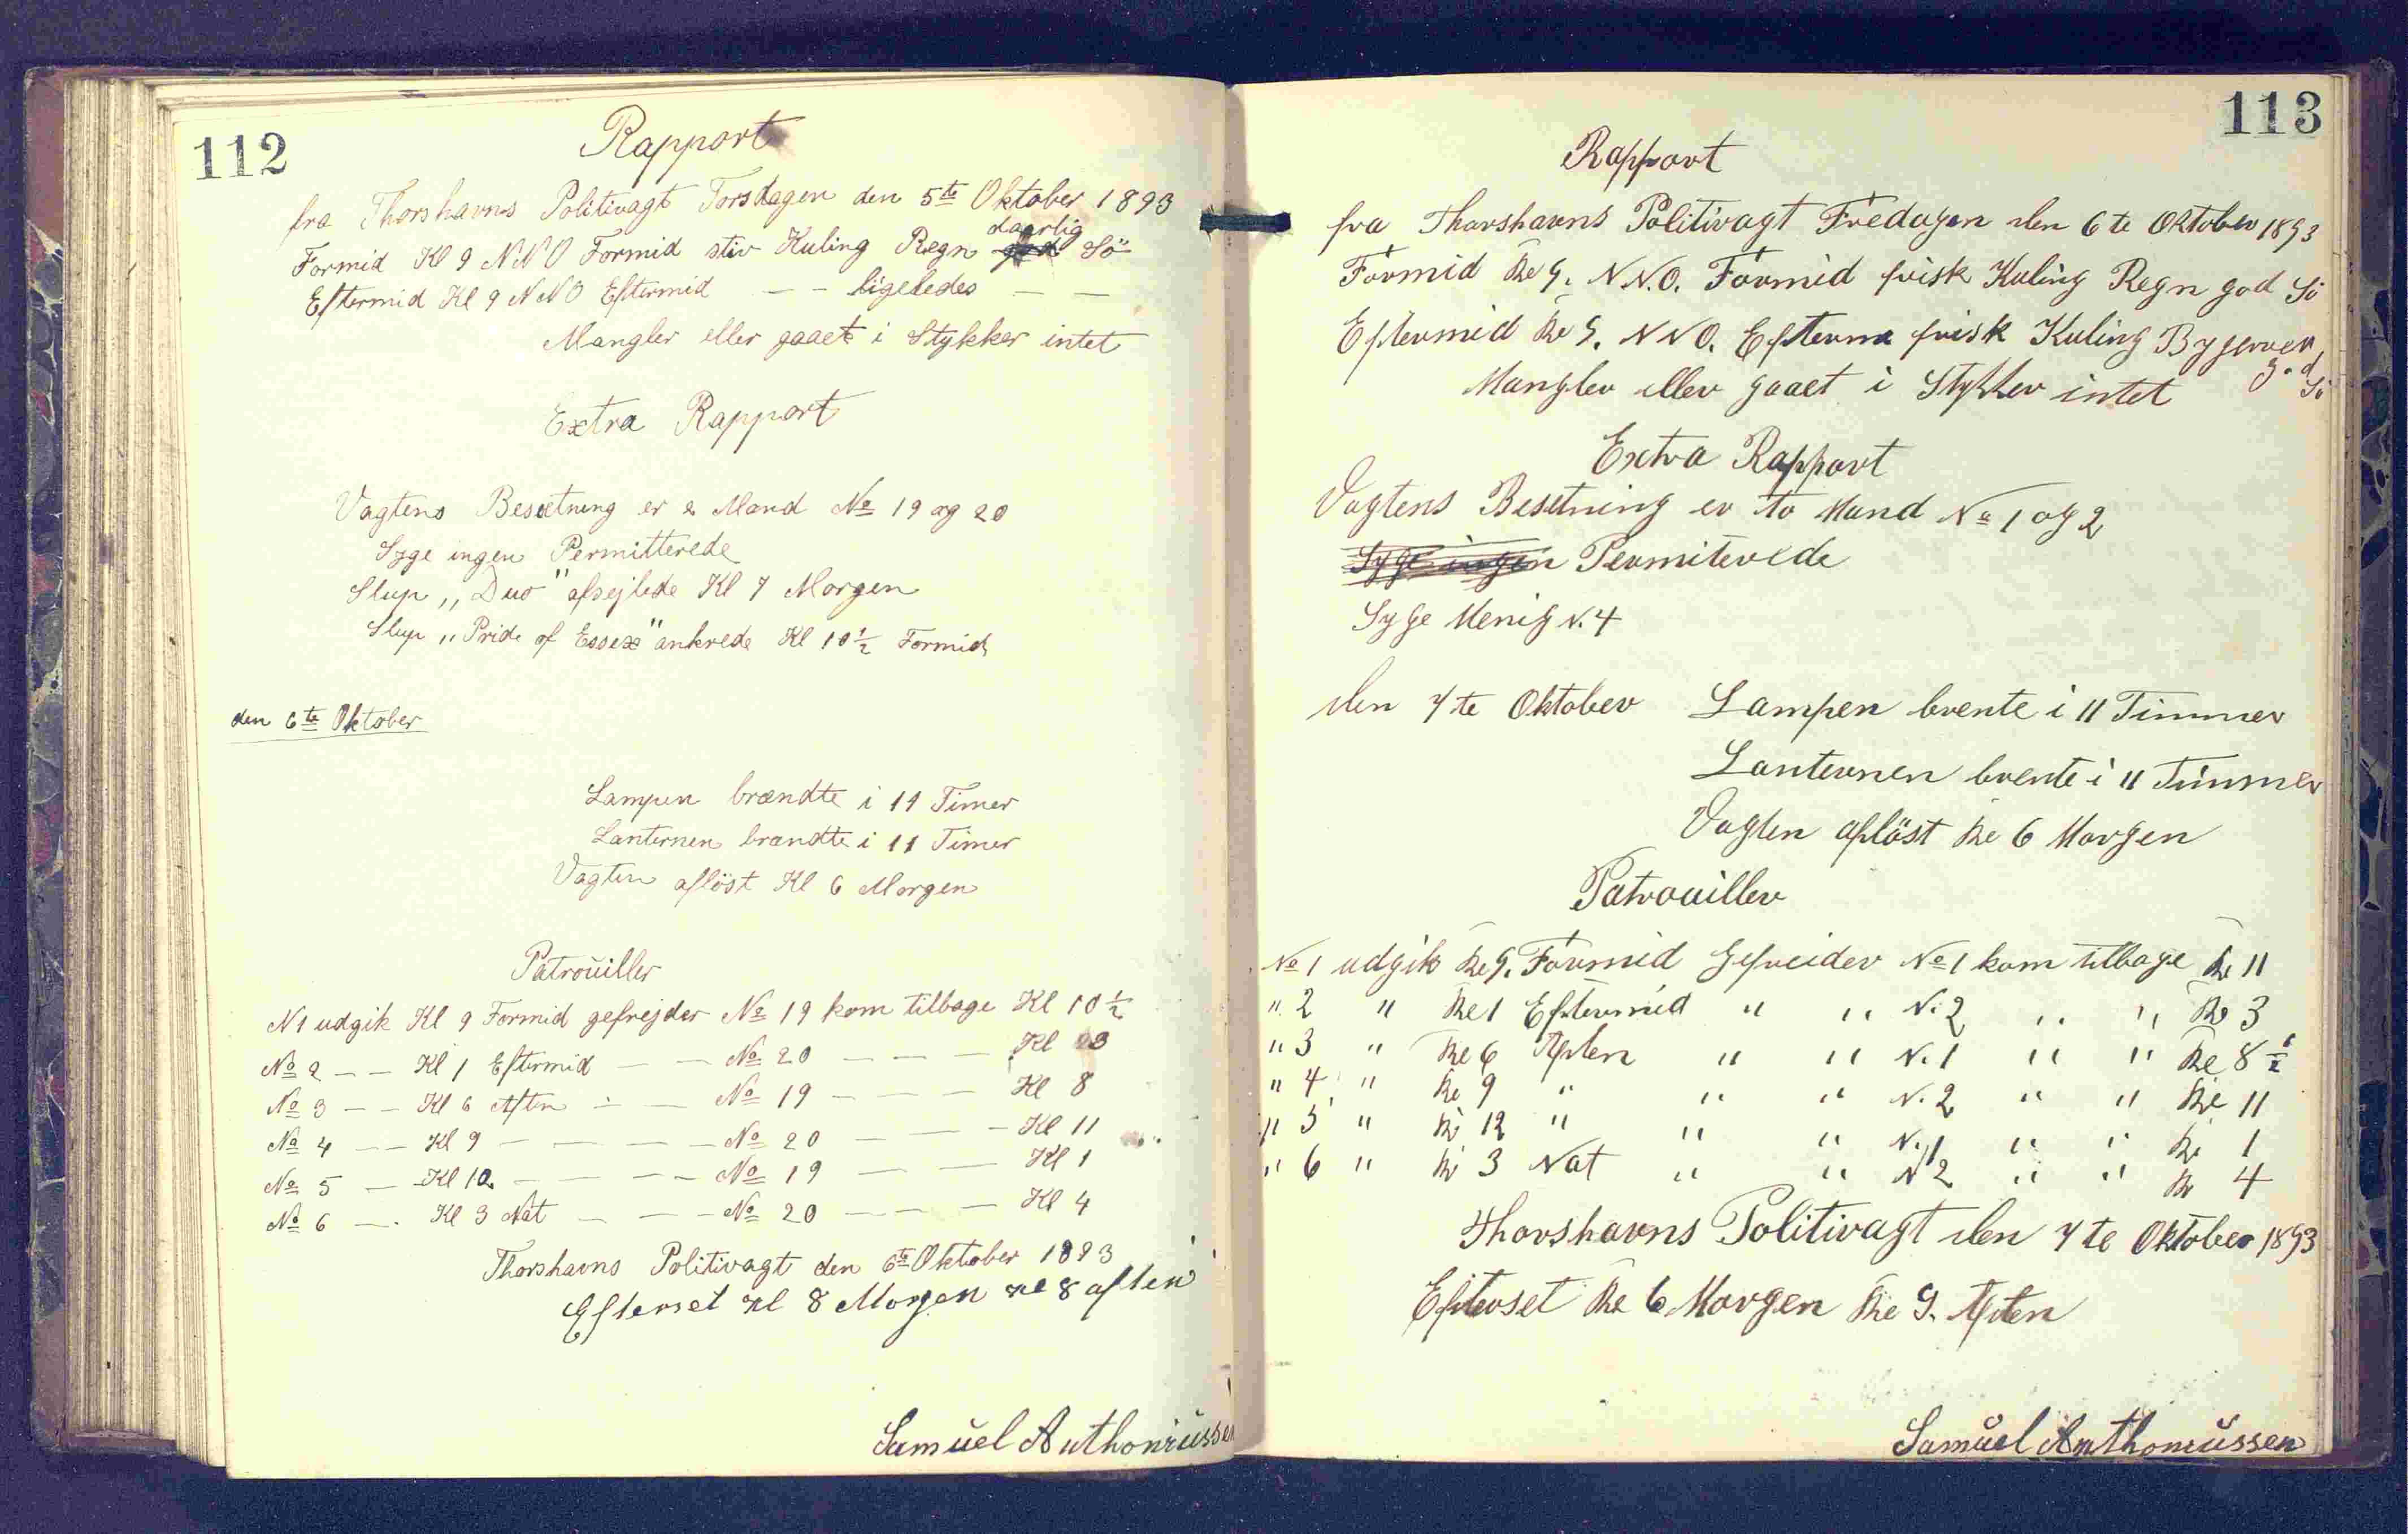 112
Rapport
fra Thorshavns Politivagt Torsdagen den 5te Oktober 1893
daarlig
Formid Kl 9 NNO Formid stiv Kuling Regn god Sö
Eftermid Kl 9 NNO Eftermid — — ligeledes — —
Mangler eller gaaet i Stykker intet
Extra Rapport
Vagtens Besætning er 2 Mand No 19 og 20
Syge ingen Permitterede
Slup „Duo" afsejlede Kl 7 Morgen
Slup „Pride of Essex" ankrede Kl 10 1/2 Formid
den 6te Oktober
Lampen brændte i 11 Timer
Lanternen brændte i 11 Timer
Vagten aflöst Kl 6 Morgen
Patrouiller
N1 udgik Kl 9 Formid gefrejder No 19 kom tilbage Kl 10 1/2
No 2 — — Kl 1 Eftermid — — No 20 — — — Kl 3
No 3 — — Kl 6 Aften — — No 19 — — — Kl 8
No 4 — — Kl 9 — — — — No 20 — — — Kl 11
No 5 — — Kl 12 — — — — No 19 — — Kl 1
No 6 — . Kl 3 Nat — — — No 20 — — — Kl 4
Thorshavns Politivagt den 6te Oktober 1893
Efterset Kl 8 Morgen Kl 8 aften
Samuel Anthoniussen
113
Rapport
fra Thorshavns Politivagt Fredagen den 6te Oktober 1893
Formid Kl 9. N.N.O. Formid frisk Kuling Regn god Sö
Eftermid Kl 9. NNO. Efterm frisk Kuling Bygerver
god Sö
Mangler eller gaaet i Stykker intet
Extra Rapport
Vagtens Besetning er to Mand No 1 og 2
Syge ingen Permiterede
Syge Menig N. 4
den 7te Oktober Lampen brente i 11 Timmer
Lanternen brente i 11 Timmer
Vagten aflöst Kl 6 Morgen
Patrouiller
No 1 udgik Kl 9. Formid Gefreider No 1 kom tilbage Kl 11
" 2 " Kl 1 Eftermid " " N. 2 " " Kl 3
" 3 " Kl 6 Aften " " N. 1 " " Kl 8 1/2
" 4 " Kl 9 " " " N. 2 " " Kl 11
" 5 " Kl 12 " " " N. 1 " " Kl 1
" 6 " Kl 3 Nat " " N 2 " " Kl 4
Thorshavns Politivagt den 7te Oktober 1893
Efterset Kl 6 Morgen Kl 9. Aften
Samuel Anthoniussen